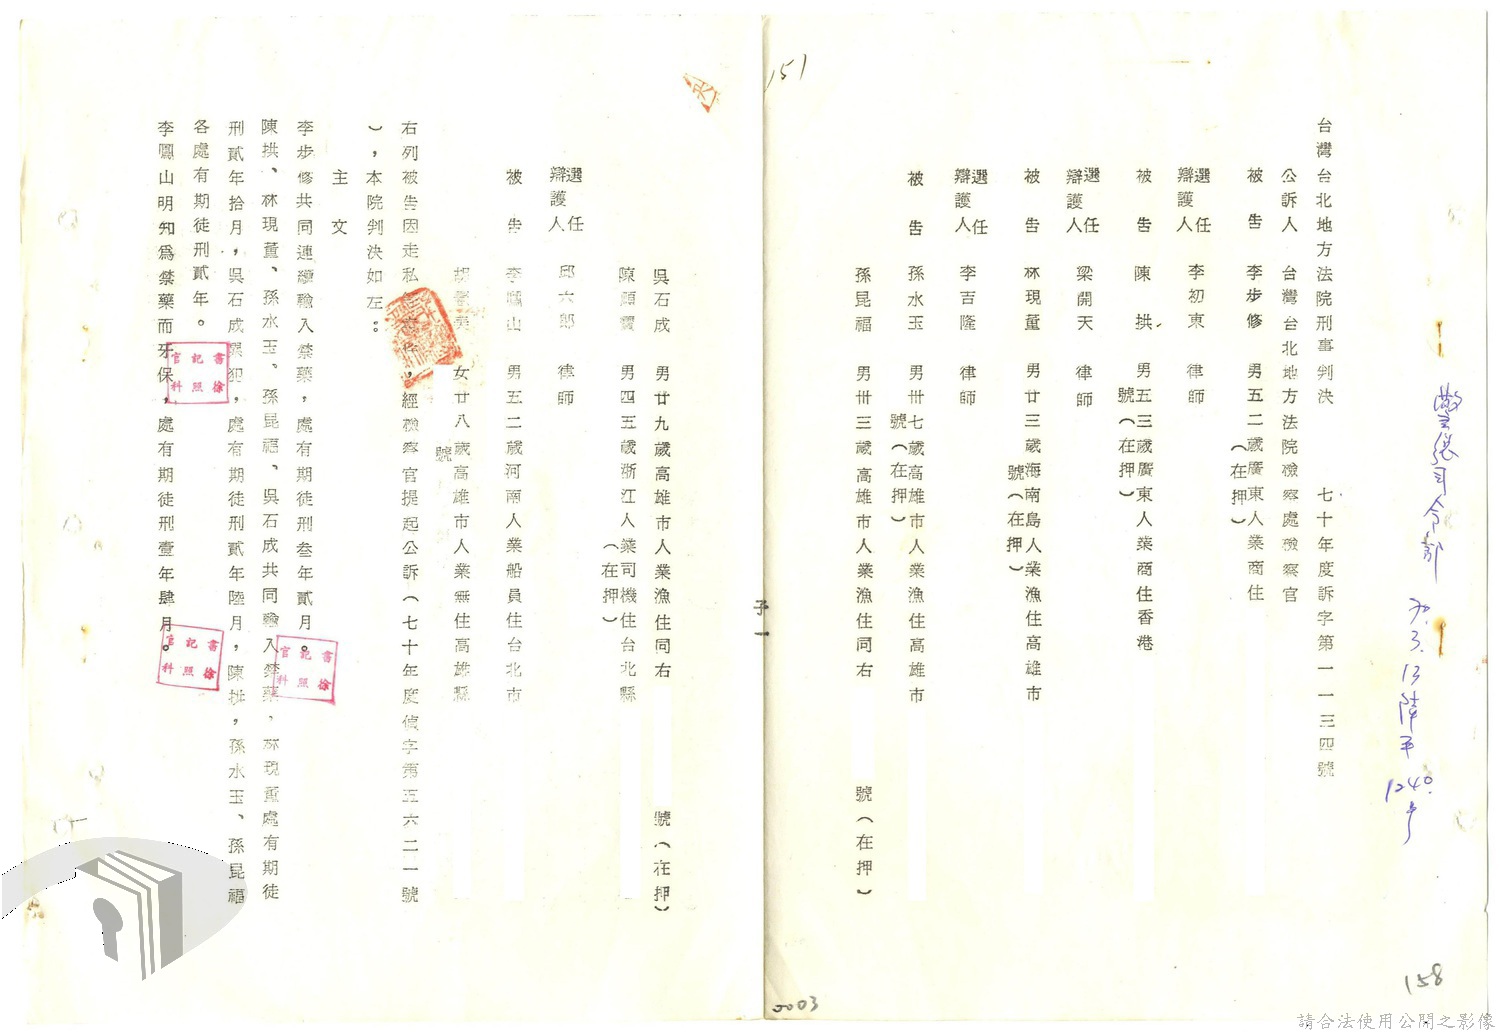 警總司令部 70.3.13 障平 1240. 号
151
台灣台北地方法院刑事判決 七十年度訴字第一一三四號
公訴人 台灣台北地方法院檢察處檢察官
被告 李步修 男五二歲廣東人業商住
(在押)
選任辯護人 李初東 律師
被告 陳拱 男五三歲廣東人業商住香港
號(在押)
選任辯護人 梁開天 律師
被告 林現董 男廿三歲海南島人業漁住高雄市
號(在押)
選任辯護人 李吉隆 律師
被告 孫水玉 男卅七歲高雄市人業漁住高雄市
號(在押)
孫昆福 男卅三歲高雄市人業漁住同右
號(在押)
158
0003
子一
吳石成 男廿九歲高雄市人業漁住同右
號(在押)
陳 男四五歲浙江人業司機住台北縣
(在押)
選任辯護人 邱六郎 律師
被告 李鳳山 男五二歲河南人業船員住台北市
胡 女廿八歲高雄市人業無住高雄縣
號
右列被告因走私,經檢察官提起公訴(七十年度偵字第五六二一號
),本院判決如左:
主文
李步修共同連續輸入禁藥,處有期徒刑叁年貳月。
陳拱、林現董、孫水玉、孫昆福、吳石成共同輸入禁藥,林現董處有期徒
刑貳年拾月,吳石成累犯,處有期徒刑貳年陸月,陳拱,孫水玉、孫昆福
各處有期徒刑貳年。
李鳳山明知為禁藥而牙保,處有期徒刑壹年肆月。
書記官徐照科
書記官徐照科
書記官徐照科
請合法使用公開之影像